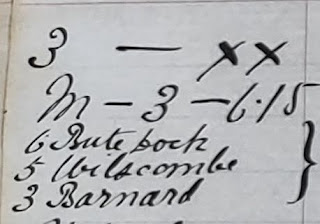 3 — XX
M - 3 - 6.15
6 Bute pock
5 Wilscombe
3 Barnard